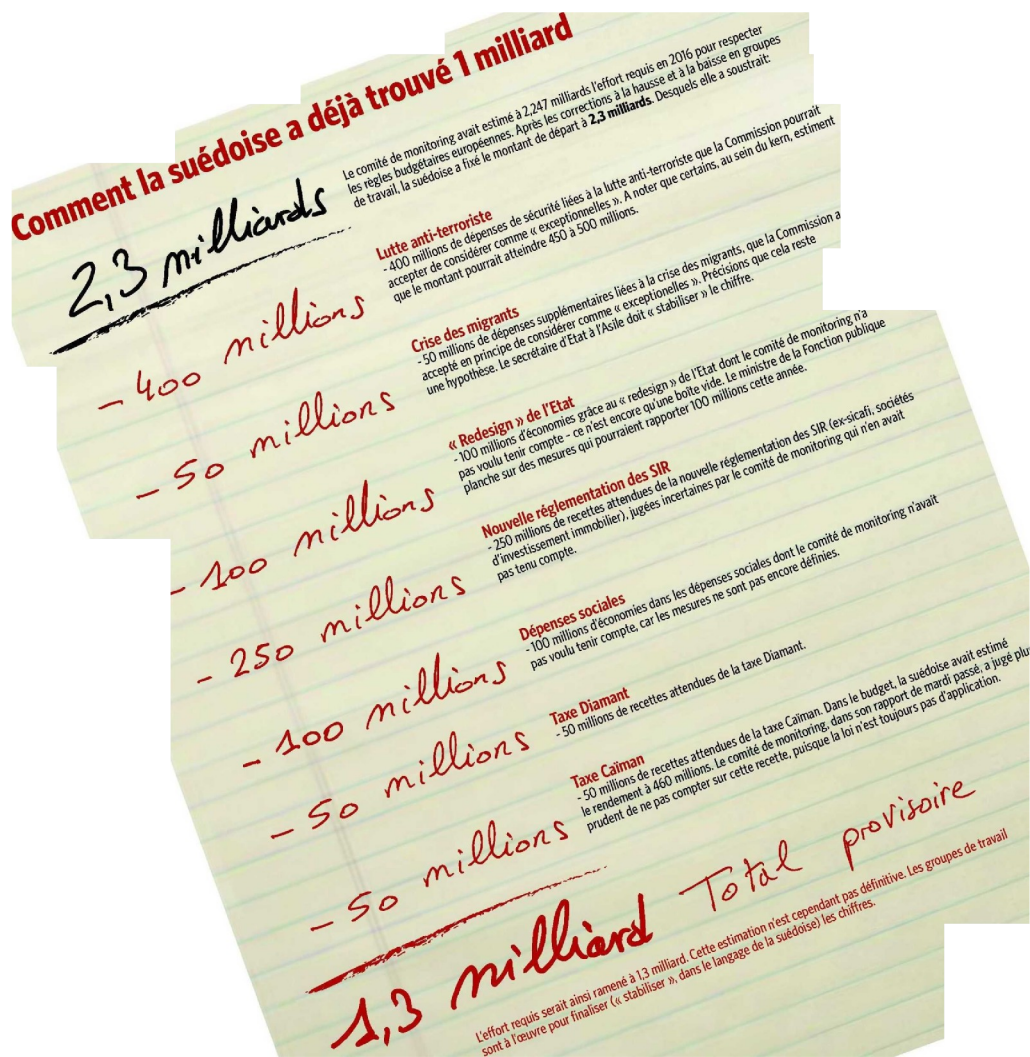 Comment la suédoise a déjà trouvé 1 milliard
Le comité de monitoring avait estimé à 2,247 milliards l'effort requis en 2016 pour respecter
les règles budgétaires européennes. Après les corrections à la hausse et à la baisse en groupes
de travail, la suédoise a fixé le montant de départ à 2,3 milliards. Desquels elle a soustrait:
2,3 milliards
Lutte anti-terroriste
- 400 millions de dépenses de sécurité liées à la lutte anti-terroriste que la Commission pourrait
accepter de considérer comme « exceptionnelles ». A noter que certains, au sein du kern, estiment
que le montant pourrait atteindre 450 à 500 millions.
- 400 millions
Crise des migrants
- 50 millions de dépenses supplémentaires liées à la crise des migrants, que la Commission a
accepté en principe de considérer comme « exceptionelles ». Précisions que cela reste
une hypothèse. Le secrétaire d'Etat à l'Asile doit « stabiliser » le chiffre.
- 50 millions
« Redesign » de l'Etat
- 100 millions d'économies grâce au « redesign » de l'Etat dont le comité de monitoring n'a
pas voulu tenir compte - ce n'est encore qu'une boîte vide. Le ministre de la Fonction publique
planche sur des mesures qui pourraient rapporter 100 millions cette année.
- 100 millions
Nouvelle réglementation des SIR
- 250 millions de recettes attendues de la nouvelle réglementation des SIR (ex-sicafi, sociétés
d'investissement immobilier), jugées incertaines par le comité de monitoring qui n'en avait
pas tenu compte.
- 250 millions
Dépenses sociales
- 100 millions d'économies dans les dépenses sociales dont le comité de monitoring n'avait
pas voulu tenir compte, car les mesures ne sont pas encore définies.
- 100 millions
Taxe Diamant
- 50 millions de recettes attendues de la taxe Diamant.
- 50 millions
Taxe Caïman
- 50 millions de recettes attendues de la taxe Caïman. Dans le budget, la suédoise avait estimé
le rendement à 460 millions. Le comité de monitoring, dans son rapport de mardi passé, a jugé plu
prudent de ne pas compter sur cette recette, puisque la loi n'est toujours pas d'application.
- 50 millions
1,3 milliard Total provisoire
L'effort requis serait ainsi ramené à 1,3 milliard. Cette estimation n'est cependant pas définitive. Les groupes de travail
sont à l'œuvre pour finaliser (« stabiliser », dans le langage de la suédoise) les chiffres.